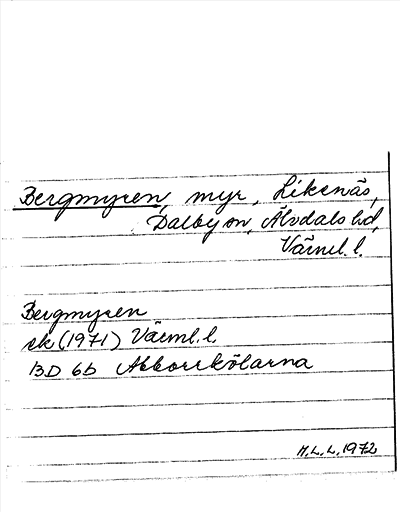 Bergmyren, myr, Likenäs,
Dalby sn, Älvdals hd,
Värml. l.
Bergmyren
ek (1971) Värml. l.
13D 6b Abborrkölarna
H.L.L. 1972